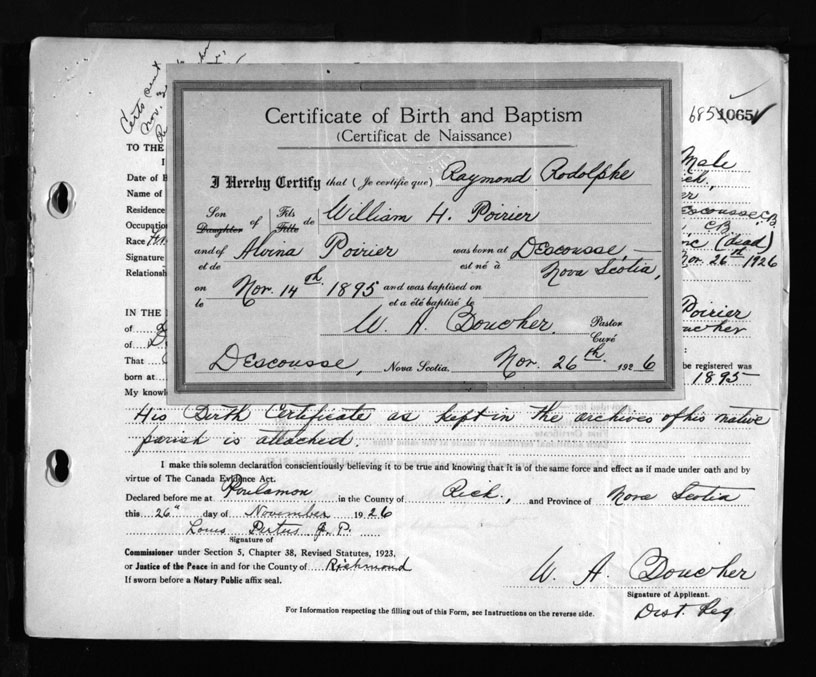 Certs sent
Nov.
685 1065
Certificate of Birth and Baptism
(Certificat de Naissance)
TO THE
Male
I Hereby Certify that (Je certifie que) Raymond Rodolphe
Date of B
Name of
Son Daughter of Fils Fille de William H. Poirier
Residence
Descousse, C.B.
Occupatio
C.B.
Race
and of et de Alvina Poirier was born at est né à Descousse,
(dead)
Signature
Nova Scotia,
Nov. 26th 1926
Relationsh
on le Nov. 14th 1895 and was baptised on et a été baptisé le
IN THE
Poirier
of
W. A. Boucher. Pastor Curé
oucher
of D
That
Descousse, Nova Scotia. Nov. 26th 1926
be registered was
born at
1895
My knowl
His Birth Certificate as kept in the archives of his native
parish is attached.
I make this solemn declaration conscientiously believing it to be true and knowing that it is of the same force and effect as if made under oath and by
virtue of The Canada Evidence Act.
Declared before me at Poulamon in the County of Rich., and Province of Nova Scotia
this 26th day of November 1926
Louis Pertus J. P.
Signature of
Commissioner under Section 5, Chapter 38, Revised Statutes, 1923,
or Justice of the Peace in and for the County of Richmond
If sworn before a Notary Public affix seal.
W. A. Boucher
Signature of Applicant.
Dist. Reg
For Information respecting the filling out of this Form, see Instructions on the reverse side.